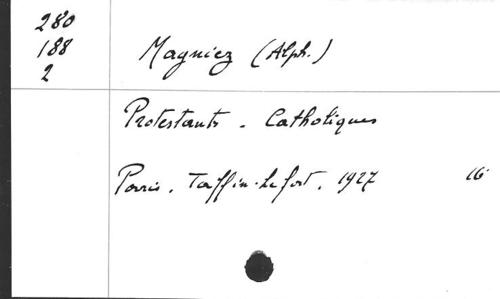 280
188
2
Magniez (Alph.)
Protestants - Catholiques
Paris, Taffin-Lefort, 1927 16°